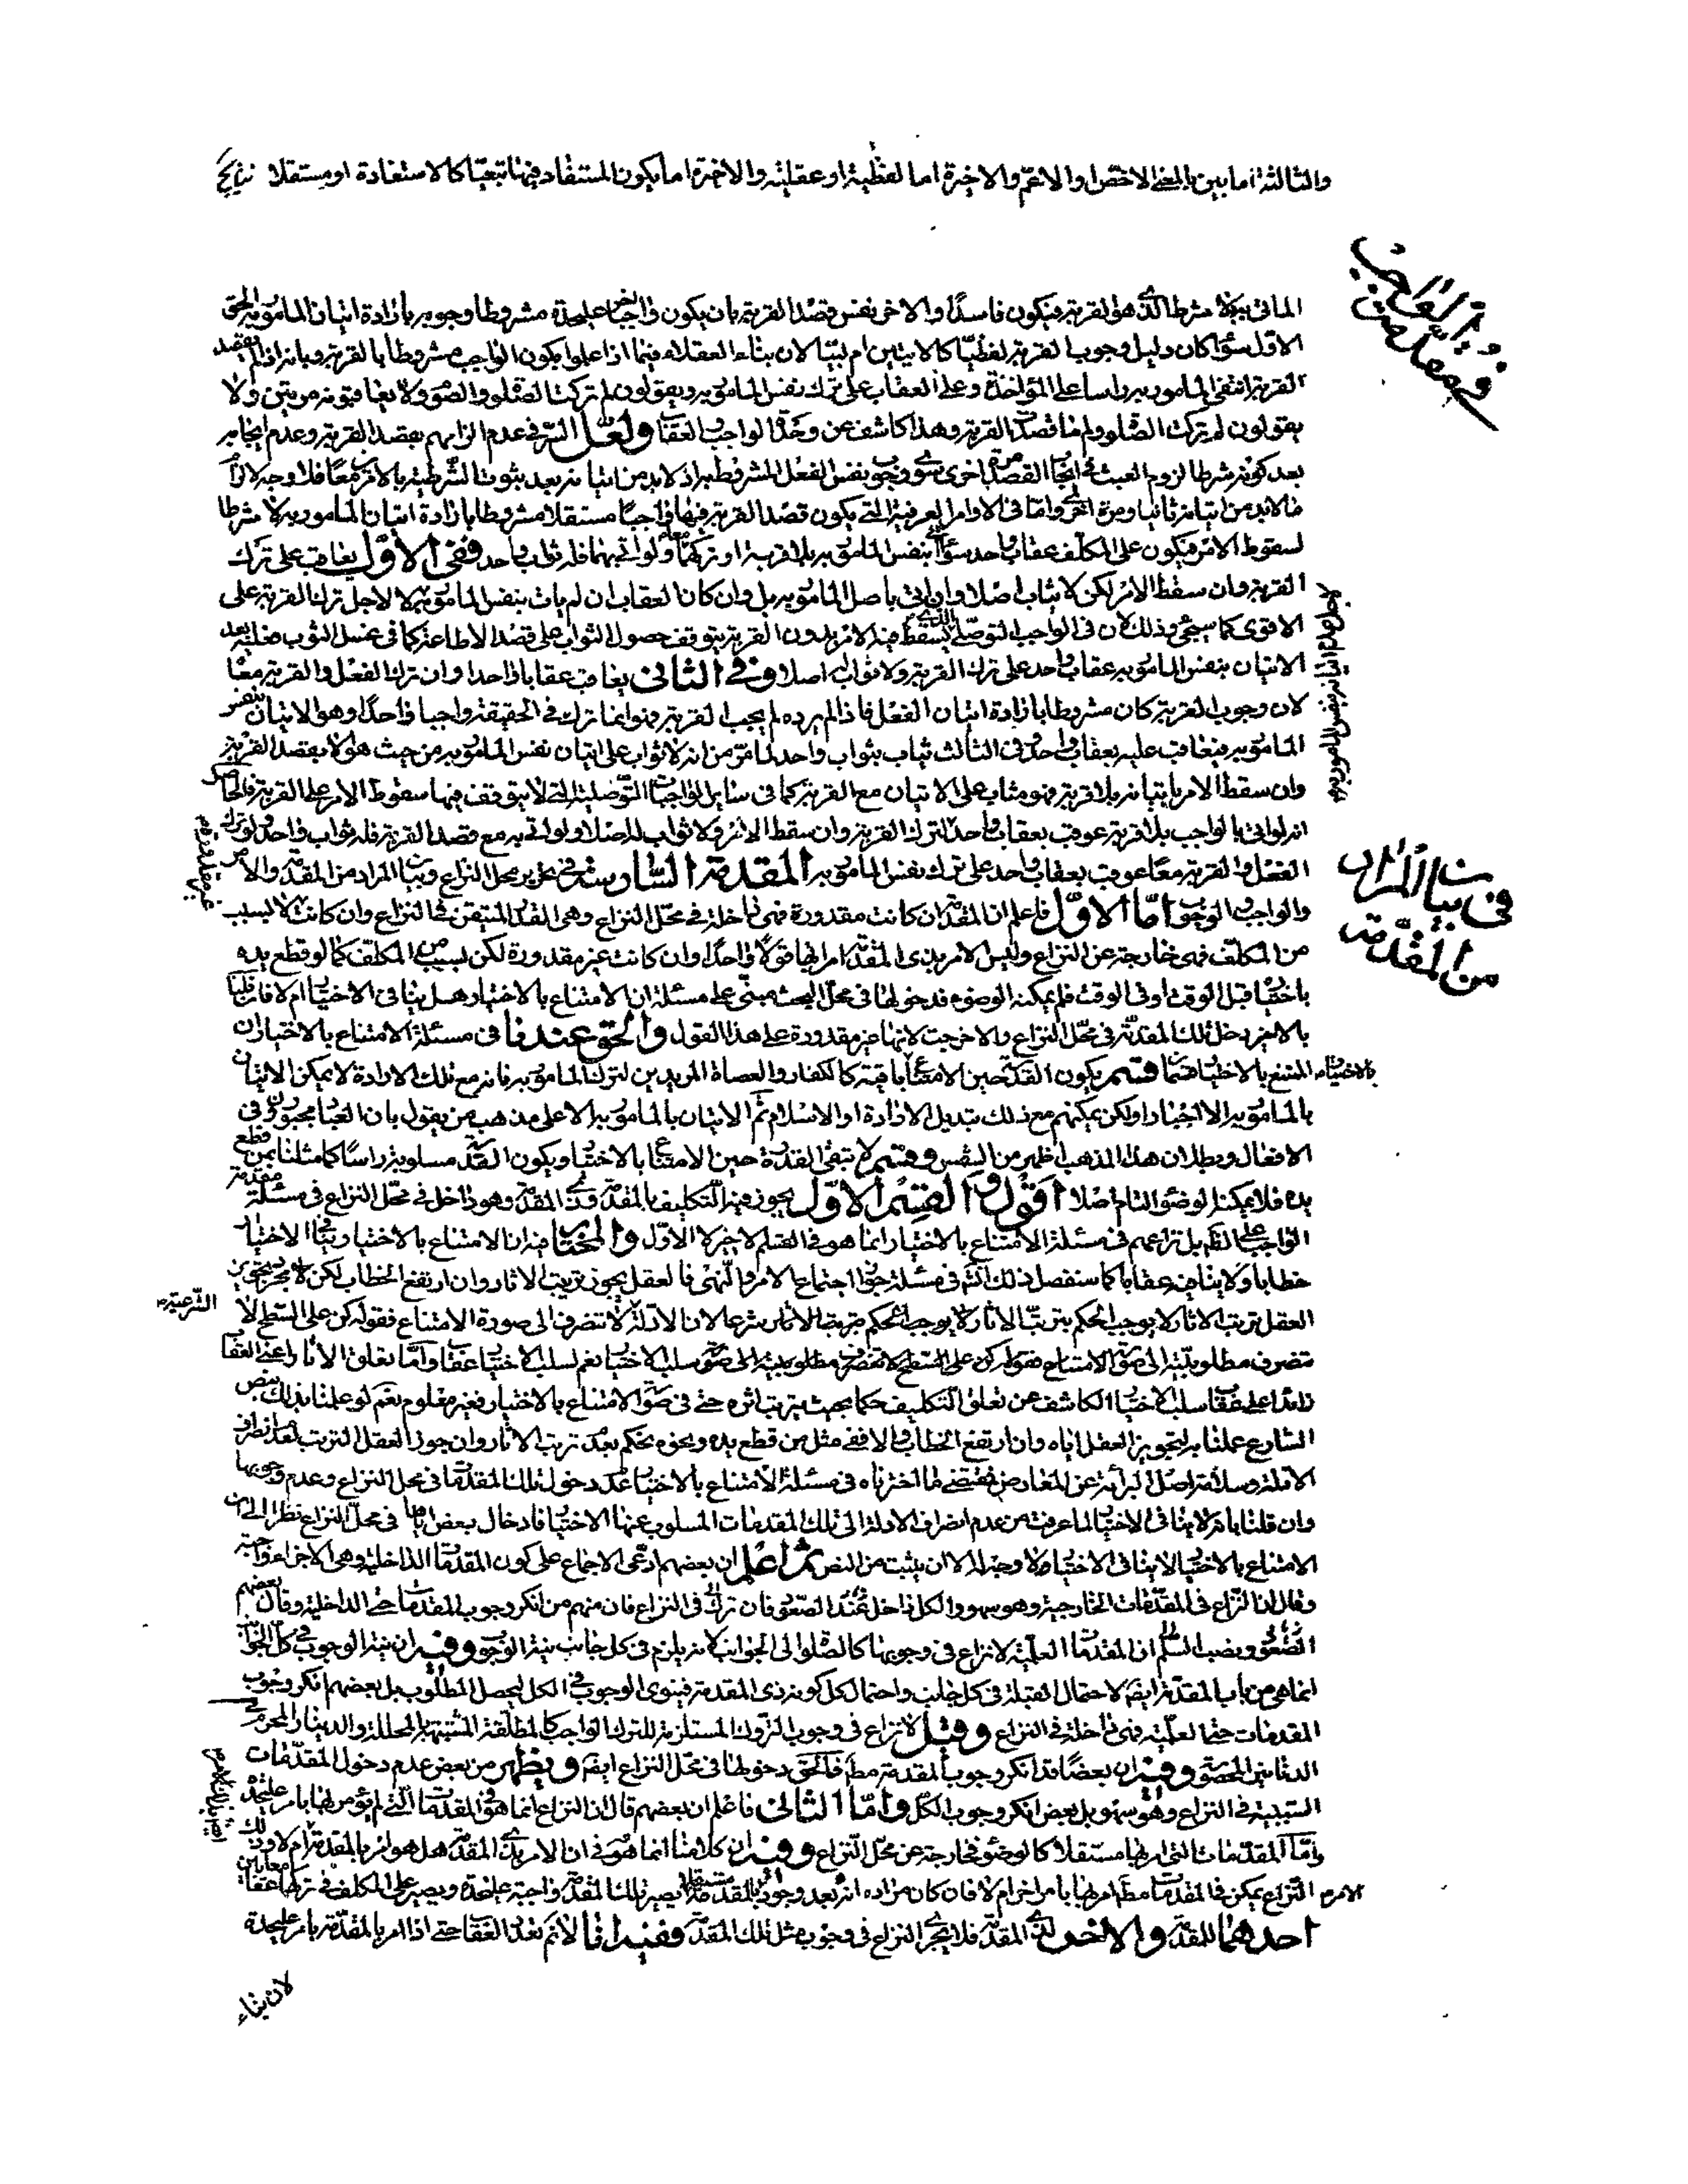 والثالثة اما بين بالمعنى الاخص او الاعم والاخيرة اما لفظية او عقلية والاخيرة اما يكون المستفاد فيها تبعيا كالاستفادة او مستقلا نتايج
في مقدمة الواجب
الماتى به بلا شرط الذى هو القربة فيكون فاسدا والاخر نفس قصد القربة بان يكون واجبا عليحدة مشروطا وجوبه بارادة اتيان المامور به الحق
الاول سواء كان دليل وجوب القربة لفظيا كالايتين ام لبيا لان بناء العقلاء فيما اذا علموا بكون الواجب مشروطا بالقربة وبانه اذا لم يقصد
القربة انتفى المامور به راسا على المؤاخذة وعلى العقاب على ترك نفس المامور به ويقولون لم تركت الصلوة والصوم ولا يعاقبونه مرتين ولا
يقولون لم تركت الصلوة ولم ما قصدت القربة وهذا كاشف عن وحدة الواجب والعقاب ولعل السر في عدم الزامهم بقصد القربة وعدم ايجابه
بعد كونه شرطا لزوم العبث في ايجاب القصد مرة اخرى سوى وجوب نفس الفعل المشروط به اذ لابد من اتيانه بعد ثبوت الشرطية بالامر معا فلا وجه لالزام
ما لابد من اتيانه ثانيا ومرة اخرى واما في الاوامر العرفية التى يكون قصد القربة فيها واجبا مستقلا مشروطا بارادة اتيان المامور به لا شرطا
لسقوط الامر فيكون على المكلف عقاب واحد سواء اتى بنفس المامور به بلا قربة او تركهما معا ولو اتى بهما فله ثواب واحد ففى الاول يعاقب على ترك
القربة وان سقط الامر لكن لا يثاب اصلا وان اتى باصل المامور به بل وان كان العقاب ان لم يات بنفس المامور به لا لاجل ترك القربة على
الاقوى كما سيجئ وذلك لان في الواجب التوصلى الذى يسقط فيه الامر بدون القربة يتوقف حصول الثواب على قصد الاطاعة كما في غسل الثوب فعليه بعد
الاتيان بنفس المامور به عقاب واحد على ترك القربة ولا ثواب له اصلا وفي الثانى يعاقب عقابا واحدا وان ترك الفعل والقربة معا
لان وجوب القربة كان مشروطا بارادة اتيان الفعل فاذا لم يرده لم يجب القربة فهو انما ترك في الحقيقة واجبا واحدا وهو الاتيان بنفس
المامور به فيعاقب عليه بعقاب واحد وفى الثالث يثاب بثواب واحد لما مر من انه لا ثواب على اتيان نفس المامور به من حيث هو لا بقصد القربة
وان سقط الامر باتيانه بلا قربة فهو مثاب على الاتيان مع القربة كما في ساير الواجبات التوصلية التى لا يتوقف فيها سقوط الامر على القربة فالحاصل
انه لو اتى بالواجب بلا قربة عوقب بعقاب واحد لترك القربة وان سقط الامر ولا ثواب له اصلا ولو اتى به مع قصد القربة فله ثواب واحد ولو ترك
الفعل والقربة معا عوقب بعقاب واحد على ترك نفس المامور به المقدمة السادسة في تحرير محل النزاع وبيان المراد من المقدمة والامر
في بيان المراد
من المقدمة
والواجب والوجوب اما الاول فاعلم ان المقدمة ان كانت مقدورة فهى داخلة في محل النزاع وهى القدر المتيقن في النزاع وان كانت لا بسبب
من المكلف فهى خارجة عن النزاع وليس الامر بذى المقدمة امرا بها قولا واحدا وان كانت غير مقدورة لكن بسبب من المكلف كما لو قطع يده
باختياره قبل الوقت او في الوقت فلم يمكنه الوضوء فدخولها في محل البحث مبنى على مسئلة ان الامتناع بالاختيار هل ينافى الاختيار ام لا فان قلنا
بالاخير دخل تلك المقدمة في محل النزاع والا خرجت لانها غير مقدورة على هذا القول والحق عندنا في مسئلة الامتناع بالاختيار ان
الممتنع بالاختيار قسمان قسم يكون القدرة حين الامتناع باقية كالكفار والعصاة المريدين لترك المامور به فانه مع تلك الارادة لا يمكن الاتيان
بالمامور به الا اختيارا ولكن يمكنهم مع ذلك تبديل الارادة او الاسلام ثم الاتيان بالمامور به الا على مذهب من يقول بان العباد مجبورون في
الافعال وبطلان هذا المذهب اظهر من الشمس وقسم لا تبقى القدرة حين الامتناع بالاختيار ويكون القدرة مسلوبة راسا كما مثلنا بمن قطع
يده فلا يمكنه الوضوء التام اصلا اقول والقسم الاول يجوز فيه التكليف بالمقدمة وذى المقدمة وهو داخل في محل النزاع في مسئلة مقدمة
الواجب على الظاهر بل نزاعهم في مسئلة الامتناع بالاختيار انما هو في القسم الاخير لا الاول والمختار فيه ان الامتناع بالاختيار ينافى الاختيار
خطابا ولا ينافيه عقابا كما سنفصل ذلك انشاء الله في مسئلة جواز اجتماع الامر والنهى فالعقل يجوز ترتب الاثار وان ارتفع الخطاب لكن لا بمجرد تجويز
العقل ترتب الاثار لا يوجب الحكم بترتب الاثار
الشرعية
تنصرف مطلوبيته الى صورة الامتناع فقوله كن على السطح لا تنصرف مطلوبيته الى صورة سلب الاختيار نعم لسلب الاختيار عقاب واما تعلق الاثار اعنى العقاب
زائدا على عقاب سلب الاختيار الكاشف عن تعلق التكليف حكما بحيث يترتب اثره حتى في صورة الامتناع بالاختيار فغير معلوم نعم لو علمنا ذلك بنص
الشارع عملنا به لتجويز العقل اياه وان ارتفع الخطاب والا ففى مثل من قطع يده ونحوه نحكم بعدم ترتب الاثار وان جوز العقل الترتب لعدم انصراف
الادلة وسلامة اصل البرائة عن المعارض فمقتضى ما اخترناه في مسئلة الامتناع بالاختيار عدم دخول تلك المقدمات في محل النزاع وعدم وجوبها
وان قلنا بانه لا ينافى الاختيار لما عرفت من عدم انصراف الادلة الى تلك المقدمات المسلوب عنها الاختيار فادخال بعض اياها في محل النزاع نظرا الى ان
الامتناع بالاختيار لا ينافى الاختيار مما لا وجه له الا ان يثبت من النص ثم اعلم ان بعضهم ادعى الاجماع على كون المقدمات الداخلية وهى الاجزاء واجبة
وقال ان النزاع في المقدمات الخارجية وهو سهو والكل داخل فان منهم من انكر وجوب المقدمات حتى الداخلية وقال بعضهم
ان المقدمات العلمية لا نزاع في وجوبها كالصلوة الى الجوانب لانه يلزم في كل جانب نية الوجوب وفيه ان نية الوجوب في كل الجوانب
انما هى من باب المقدمة ايضا لاحتمال القبلة في كل جانب واحتمال كل كونه ذى المقدمة فينوى الوجوب في الكل ليحصل المطلوب بل بعضهم انكر وجوب
المقدمات حتى العلمية فهى داخلة في النزاع وقيل لا نزاع في وجوب التروك المستلزمة للترك الواجب كالمطلقة المشتبهة بالمحللة والدينار المحرم في
الدنانير المحصورة وفيه ان بعضا قد انكر وجوب المقدمة مطلقا فالحق دخولها في محل النزاع ايضا ويظهر من بعض عدم دخول المقدمات
السببية في النزاع وهو سهو بل بعض انكر وجوب الكل واما الثانى فاعلم ان بعضهم قال ان النزاع انما هو في المقدمات التى لم يؤمر بها بامر عليحدة
واما المقدمات التى امر بها مستقلا كالوضوء فخارجة عن محل النزاع وفيه ان كلامنا انما هو في ان الامر بذى المقدمة هل هو امر بالمقدمة ام لا وذلك
النزاع يمكن في المقدمات مطلقا امر بها بامر اخر ام لا فان كان مراده انه بعد وجود الامر بالمقدمة مستقلا يصير تلك المقدمة واجبة عليحدة ويصير على المكلف في تركها عقابين
احدهما للمقدمة والاخر لذى المقدمة فلا يجرى النزاع في وجوب مثل تلك المقدمة ففيه انا لا نم تعدد العقاب حتى اذا امر بالمقدمة بامر عليحدة
لان بناء